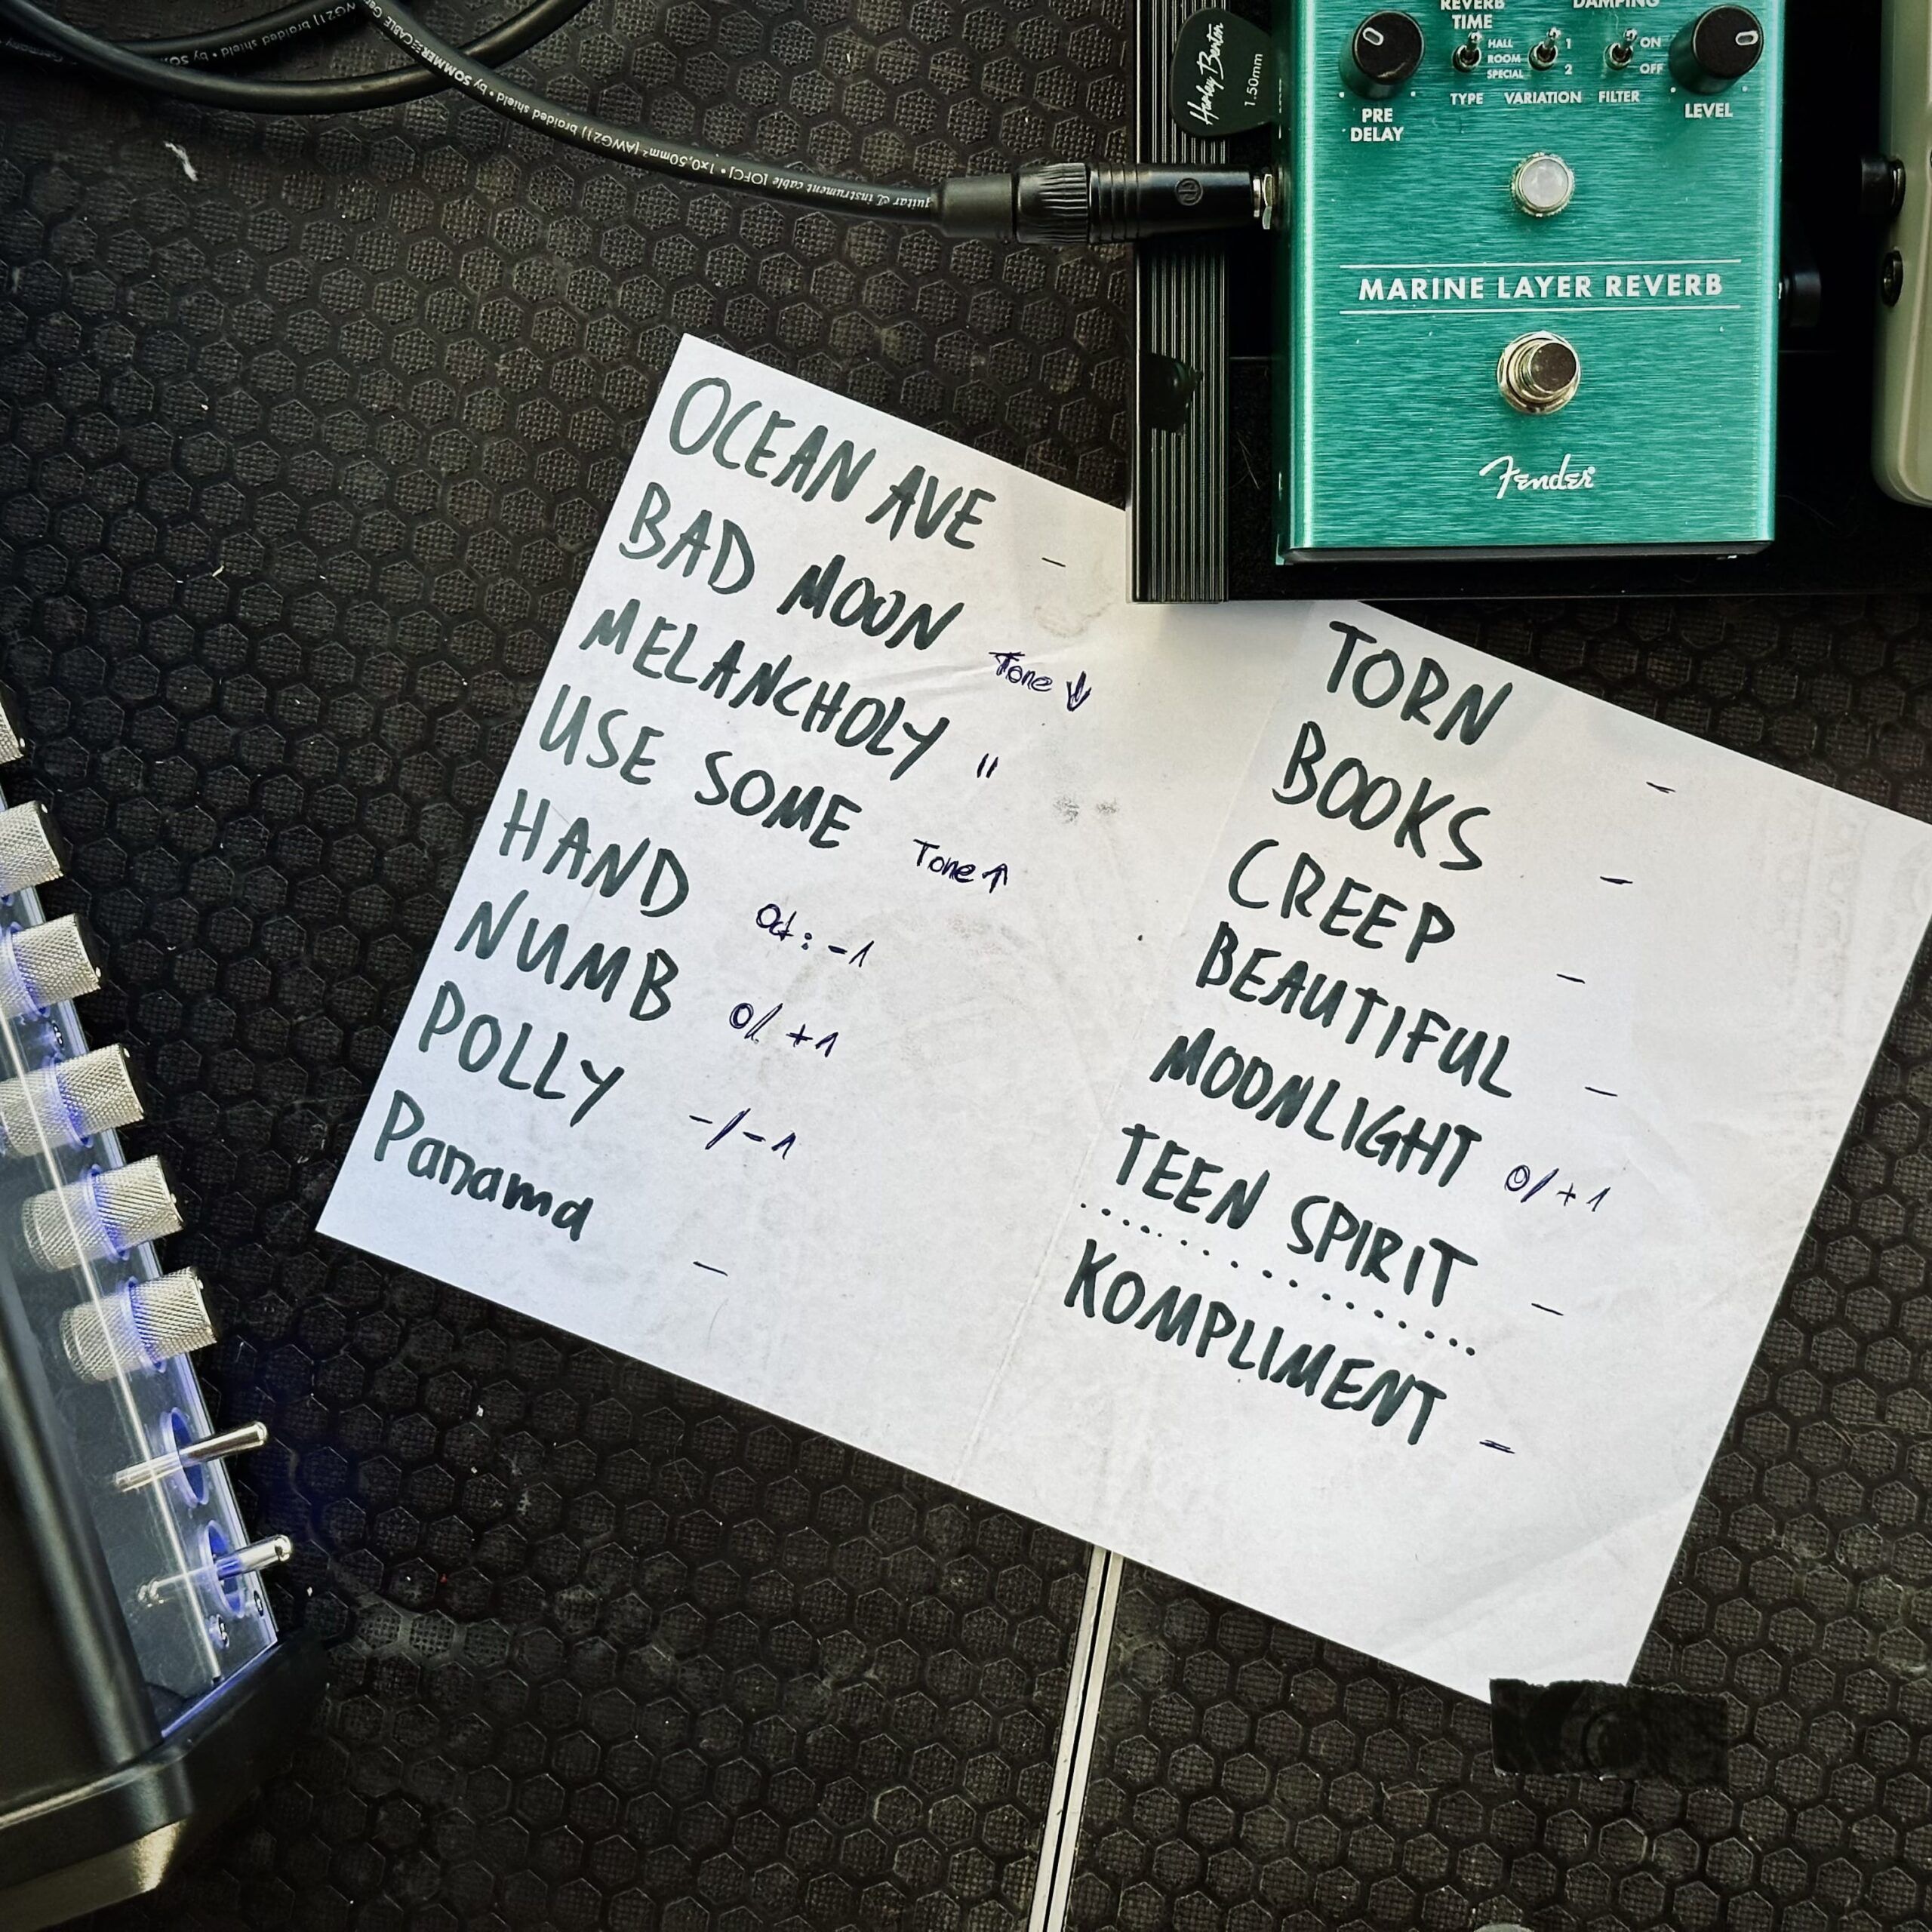 guitar & instrument cable [OFC] • 1x0,50mm² (AWG21) braided shield • by SOMMER CABLE
braided shield • by SOMMER
Harley Benton
1.50mm
REVERB
TIME
DAMPING
HALL
ROOM
SPECIAL
1
2
ON
OFF
PRE
DELAY
TYPE
VARIATION
FILTER
LEVEL
MARINE LAYER REVERB
Fender
OCEAN AVE -
BAD MOON Tone ↓
MELANCHOLY "
USE SOME Tone ↑
HAND Okt: -1
NUMB 0/+1
POLLY -/-1
Panama -
TORN -
BOOKS -
CREEP -
BEAUTIFUL -
MOONLIGHT 0/+1
TEEN SPIRIT -
KOMPLIMENT -